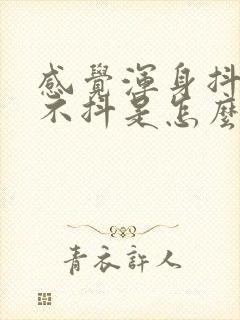 感覺渾身抖
不抖是怎麼
青衣許人